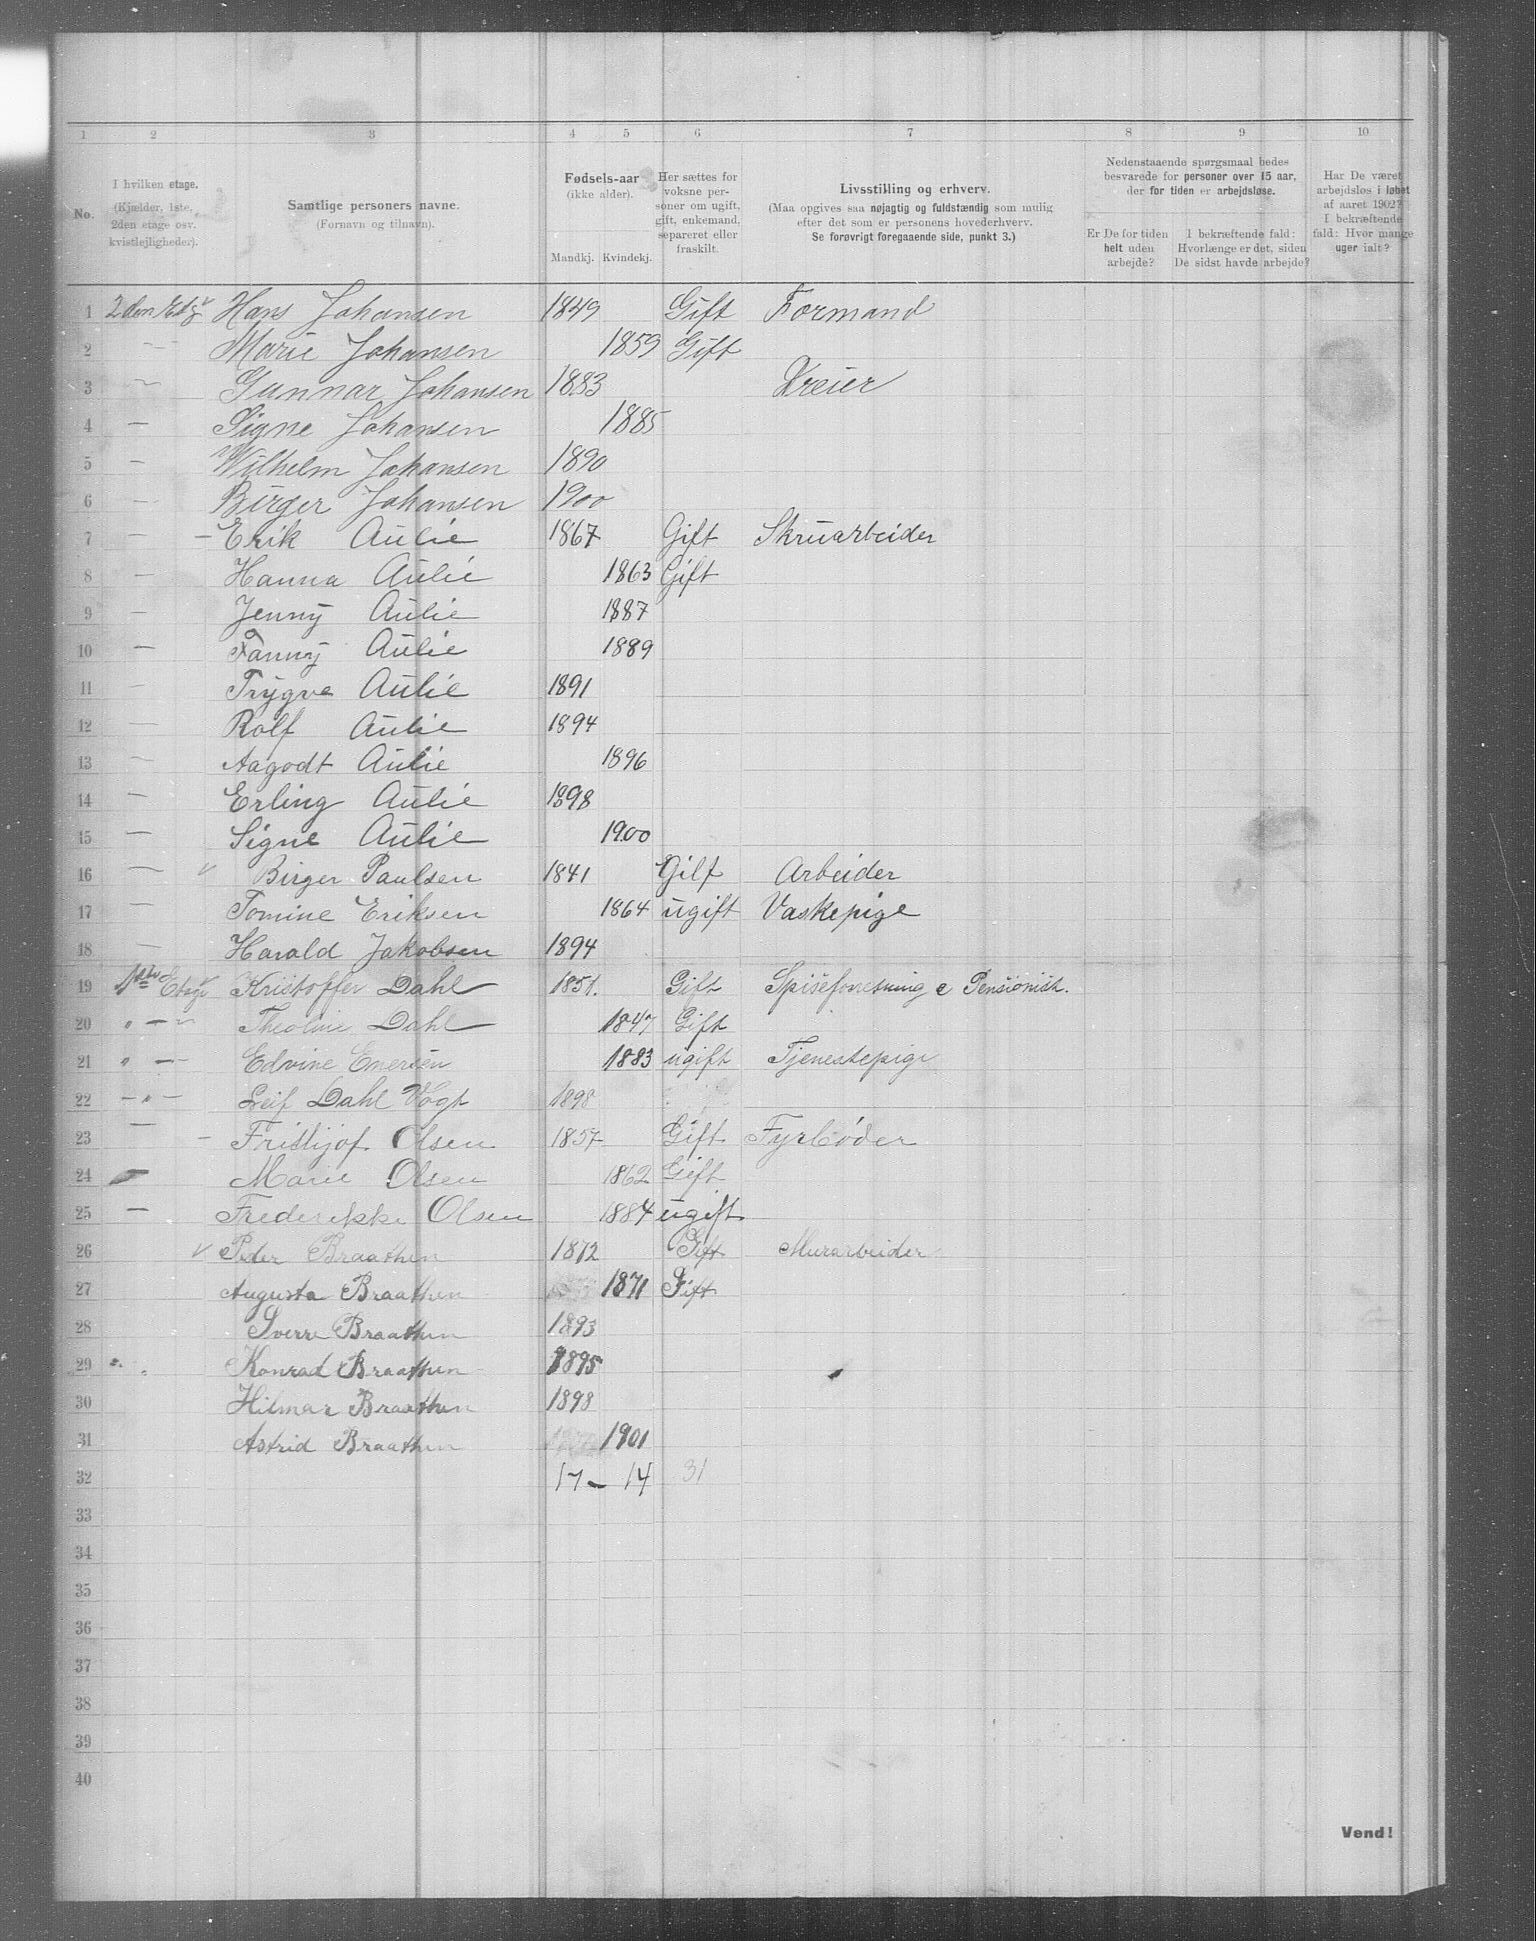 1 2 3 4 5 6 7 8 9 10
No.
I hvilken etage.
(Kjælder, 1ste, 2den etage osv. kvistlejligheder).
Samtlige personers navne.
(Fornavn og tilnavn).
Fødsels-aar
(ikke alder).
Mandkj. Kvindekj.
Her sættes for voksne personer om ugift, gift, enkemand, separeret eller fraskilt.
Livsstilling og erhverv.
(Maa opgives saa nøjagtig og fuldstændig som mulig
efter det som er personens hovederhverv.
Se forøvrigt foregaaende side, punkt 3.)
Nedenstaaende spørgsmaal bedes
besvarede for personer over 15 aar,
der for tiden er arbejdsløse.
Er De for tiden
helt uden
arbejde?
I bekræftende fald:
Hvorlænge er det, siden
De sidst havde arbejde?
Har De været
arbejdsløs i løbet
af aaret 1902?
I bekræftende
fald: Hvor mange
uger ialt?
1 2den Etg Hans Johansen 1849 Gift Formand
2 — Marie Johansen 1859 Gift
3 — Gunnar Johansen 1883 Dreier
4 — Signe Johansen 1885
5 — Wilhelm Johansen 1890
6 — Birger Johansen 1900
7 — Erik Aulie 1867 Gift Skruarbeider
8 — Hanna Aulie 1863 Gift
9 — Jenny Aulie 1887
10 — Fanny Aulie 1889
11 — Trygve Aulie 1891
12 — Rolf Aulie 1894
13 — Aagodt Aulie 1896
14 — Erling Aulie 1898
15 — Signe Aulie 1900
16 — Birger Paulsen 1841 Gift Arbeider
17 — Tomine Eriksen 1864 ugift Vaskepige
18 — Harald Jakobsen 1894
19 1ste Etage Kristoffer Dahl 1851. Gift Spiseforretning e Pensionist.
20 " — Theoline Dahl 1847 Gift
21 " — Edvine Enersen 1883 ugift Tjenestepige
22 — " — Leif Dahl Vogt 1898
23 — Frithjof Olsen 1857 Gift Fyrbøder
24 — Marie Olsen 1862 Gift
25 — Frederikke Olsen 1884 ugift
26 Peder Braathen 1872 Gift Murarbeider
27 Augusta Braathen 1871 Gift
28 Sverre Braathen 1893
29 Konrad Braathen 1895
30 Hilmar Braathen 1898
31 Astrid Braathen 1901
32 17 – 14 31
33
34
35
36
37
38
39
40
Vend!